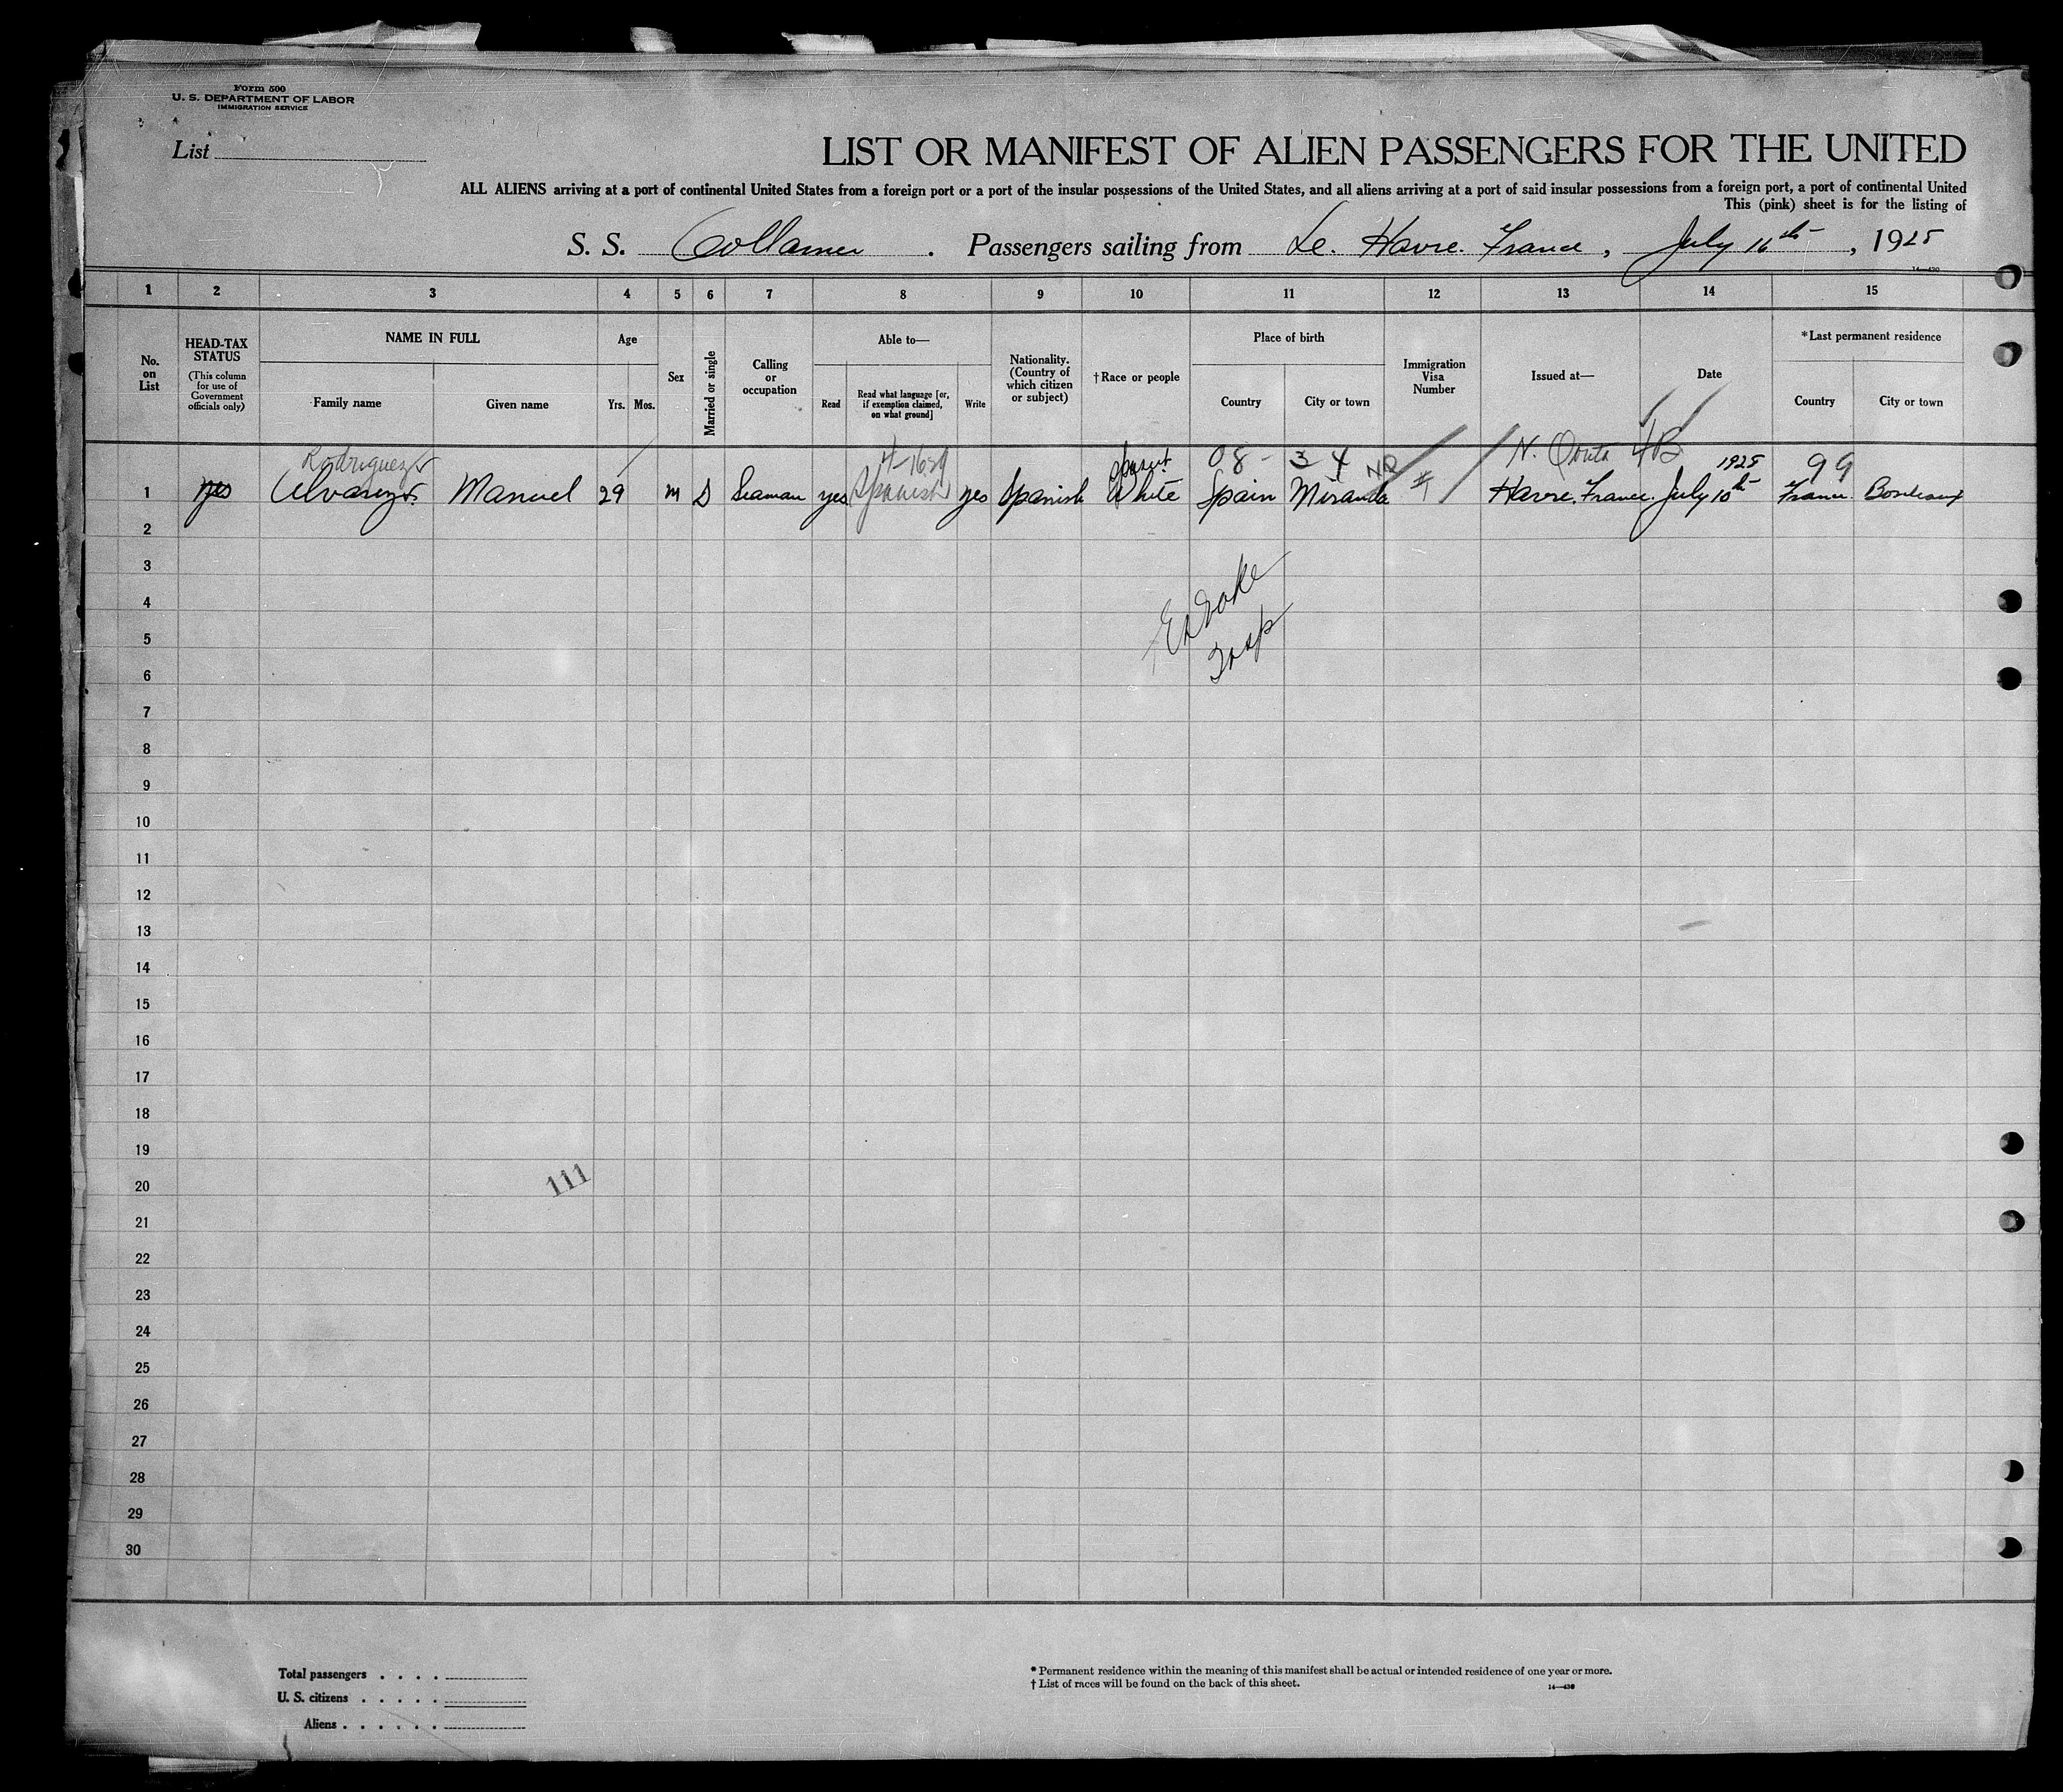 Form 500
U. S. DEPARTMENT OF LABOR
IMMIGRATION SERVICE
List
LIST OR MANIFEST OF ALIEN PASSENGERS FOR THE UNITED
ALL ALIENS arriving at a port of continental United States from a foreign port or a port of the insular possessions of the United States, and all aliens arriving at a port of said insular possessions from a foreign port, a port of continental United
This (pink) sheet is for the listing of
S. S. Collamer . Passengers sailing from Le. Havre. France, July 16th, 1925
14—430
1 2 3 4 5 6 7 8 9 10 11 12 13 14 15
No. on List
HEAD-TAX STATUS
(This column for use of Government officials only)
NAME IN FULL
Family name
Given name
Age
Yrs. Mos.
Sex
Married or single
Calling or occupation
Able to—
Read
Read what language [or, if exemption claimed, on what ground]
Write
Nationality. (Country of which citizen or subject)
†Race or people
Place of birth
Country
City or town
Immigration Visa Number
Issued at—
Date
*Last permanent residence
Country
City or town
Rodriguez 08 - 34 NR 1925 99
1 yes Alvarez Manuel 29 m S Seaman yes Spanish yes Spanish White Spain Miranda Havre. France. July 10th France. Bordeaux
2
3
4
5
6
7
8
9
10
11
12
13
14
15
16
17
18
19
20
111
21
22
23
24
25
26
27
28
29
30
Total passengers . . . .
U. S. citizens . . . . .
Aliens . . . . . .
* Permanent residence within the meaning of this manifest shall be actual or intended residence of one year or more.
† List of races will be found on the back of this sheet.
14—430